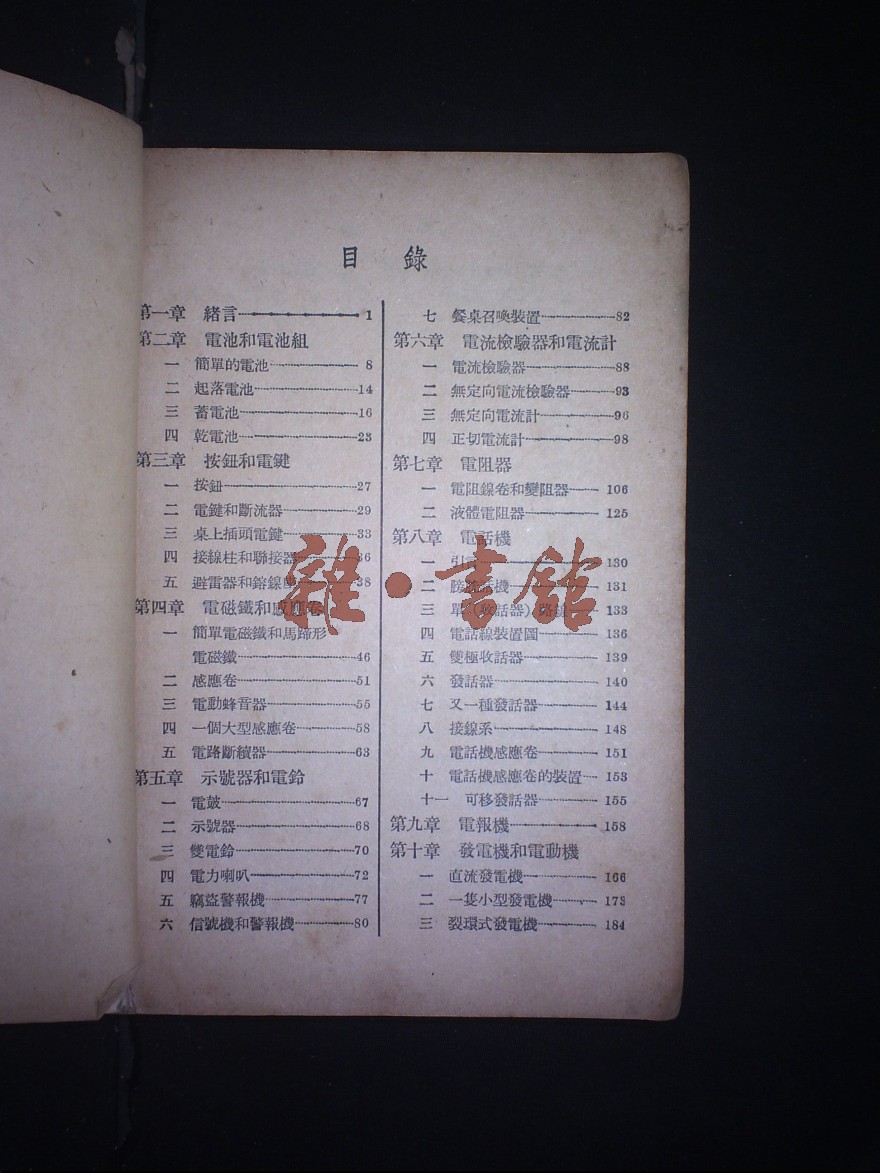 目 錄
第一章 緒言 1
第二章 電池和電池組
一 簡單的電池 8
二 起落電池 14
三 蓄電池 16
四 乾電池 23
第三章 按鈕和電鍵
一 按鈕 27
二 電鍵和斷流器 29
三 桌上插頭電鍵 33
四 接線柱和聯接器 36
五 避雷器和鎔線 38
第四章 電磁鐵和感應卷
一 簡單電磁鐵和馬蹄形
電磁鐵 46
二 感應卷 51
三 電動蜂音器 55
四 一個大型感應卷 58
五 電路斷續器 63
第五章 示號器和電鈴
一 電鼓 67
二 示號器 68
三 雙電鈴 70
四 電力喇叭 72
五 竊盜警報機 77
六 信號機和警報機 80
七 餐桌召喚裝置 82
第六章 電流檢驗器和電流計
一 電流檢驗器 88
二 無定向電流檢驗器 93
三 無定向電流計 96
四 正切電流計 98
第七章 電阻器
一 電阻線卷和變阻器 106
二 液體電阻器 125
第八章 電話機
一 引言 130
二 話機 131
三 單(收話器) 133
四 電話線裝置圖 136
五 雙極收話器 139
六 發話器 140
七 又一種發話器 144
八 接線系 148
九 電話機感應卷 151
十 電話機感應卷的裝置 153
十一 可移發話器 155
第九章 電報機 158
第十章 發電機和電動機
一 直流發電機 166
二 一隻小型發電機 173
三 裂環式發電機 184
雜·書館